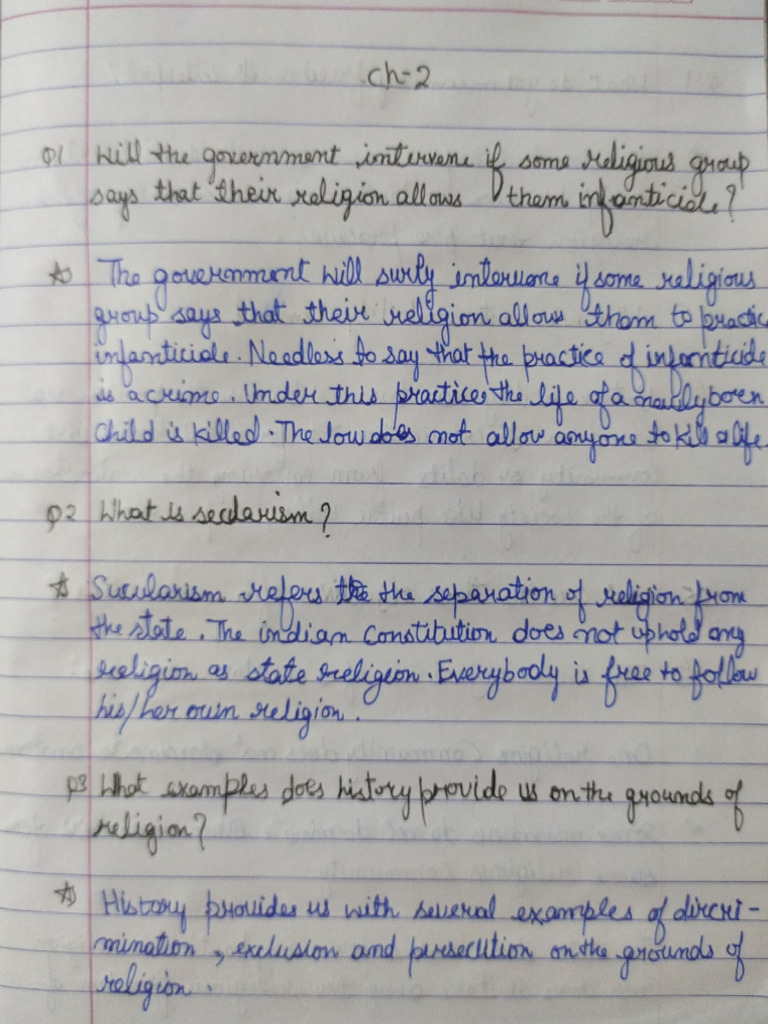 Ch-2
Q1 Will the government intervene if some religious group
says that their religion allows them infanticide?
A The government will surly intervene if some religious
group says that their religion allows them to practic
infanticide. Needless to say that the practice of infanticide
is a crime. Under this practice, the life of a newlyborn
Child is killed. The low does not allow anyone to kill a life.
Q2 What is seclarism?
A Sucularism refers the the separation of religion from
the state. The indian Constitution does not uphold any
religion as state religion. Everybody is free to follow
his/her own religion.
Q3 What examples does history provide us on the grounds of
religion?
A History provides us with several examples of discri-
mination, exclusion and persecution on the grounds of
religion.